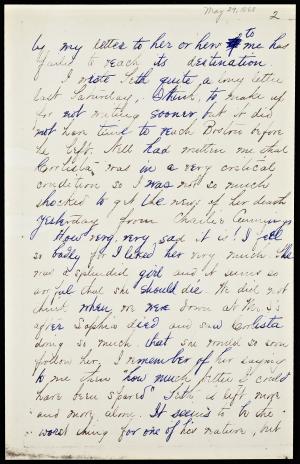 May 29, 1868
2
by my letter to her or hers to me has
failed to reach its destination.
I wrote Seth quite a long letter
last Saturday, I think, to make up
for not writing sooner but it did
not have time to reach Boston before
he left. Nell had written me that
Corlista was in a very critical
condition so I was not so much
shocked to get the news of her death
yesterday from Charlie Cummings
How very, very sad it is! I feel
so badly for I liked her very much. She
was a splendid girl and it seems so
awful that she should die. We did not
think when we were down at
after Sophia died and saw Corlista
so much, that she would so soon
follow her. I remember of her saying
to me then "how much better I could
have been spared" Seth is left more
and more alone. It seems to be the
worst thing for one of his nature, but